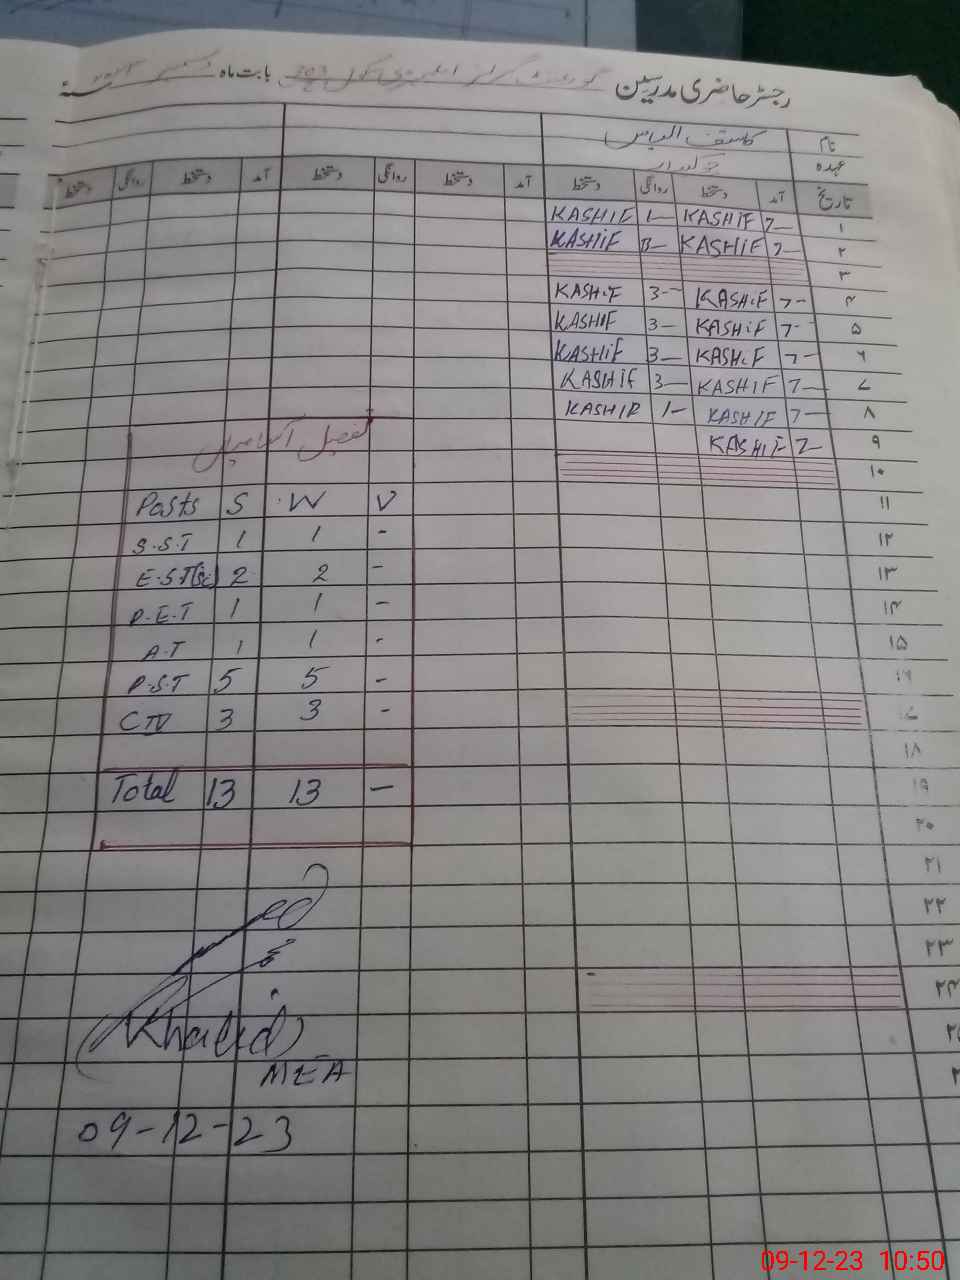 رجسٹر حاضری مدرسین گورنمنٹ گرلز ایلیمنٹری سکول 203 بابت ماہ دسمبر سنہ
نام کاشف الیاس
عہدہ چوکیدار
تاریخ آمد دستخط روانگی دستخط آمد دستخط روانگی دستخط آمد دستخط روانگی دستخط
۱ 7- KASHIF 1- KASHIF
۲ 7- KASHIF KASHIF
۳
۴ 7- KASHIF 3- KASHIF
۵ 7- KASHIF 3- KASHIF
۶ 7- KASHIF 3- KASHIF
۷ 7- KASHIF 3- KASHIF
۸ 7- KASHIF 1- KASHIF
۹ 7- KASHIF
۱۰
۱۱
۱۲
۱۳
۱۴
۱۵
۱۶
۱۷
۱۸
۱۹
۲۰
۲۱
۲۲
۲۳
۲۴
تفصیل آسامیاں
Posts S W V
S.S.T 1 1 -
E.S.T(Sc) 2 2 -
P.E.T 1 1 -
A.T 1 1 -
P.S.T 5 5 -
C IV 3 3 -
Total 13 13 -
(Khalid)
MEA
09-12-23
09-12-23 10:50